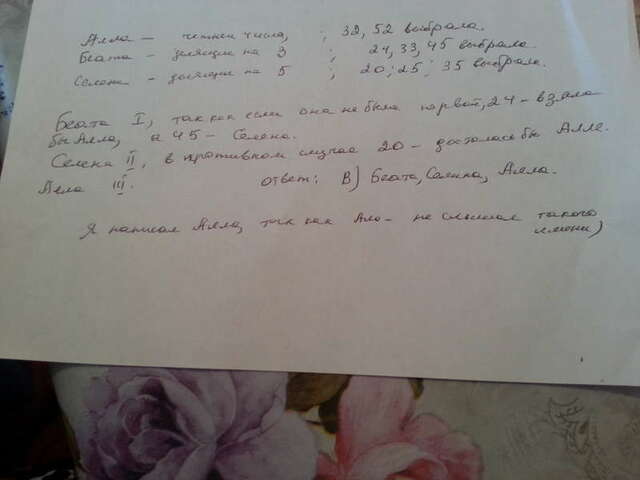 Алла — четные числа, ; 32, 52 выбрала.
Беата — делящие на 3 ; 24, 33, 45 выбрала.
Селена - делящие на 5 ; 20; 25; 35 выбрала.
Беата I, так как если она не была первой, 24 - взяла
бы Алла, а 45 - Селена.
Селена II, в противном случае 20 - досталось бы Алле.
Алла III. ответ: В) Беата, Селина, Алла.
Я написал Алла, так как Ало - не слышал такого
имени)